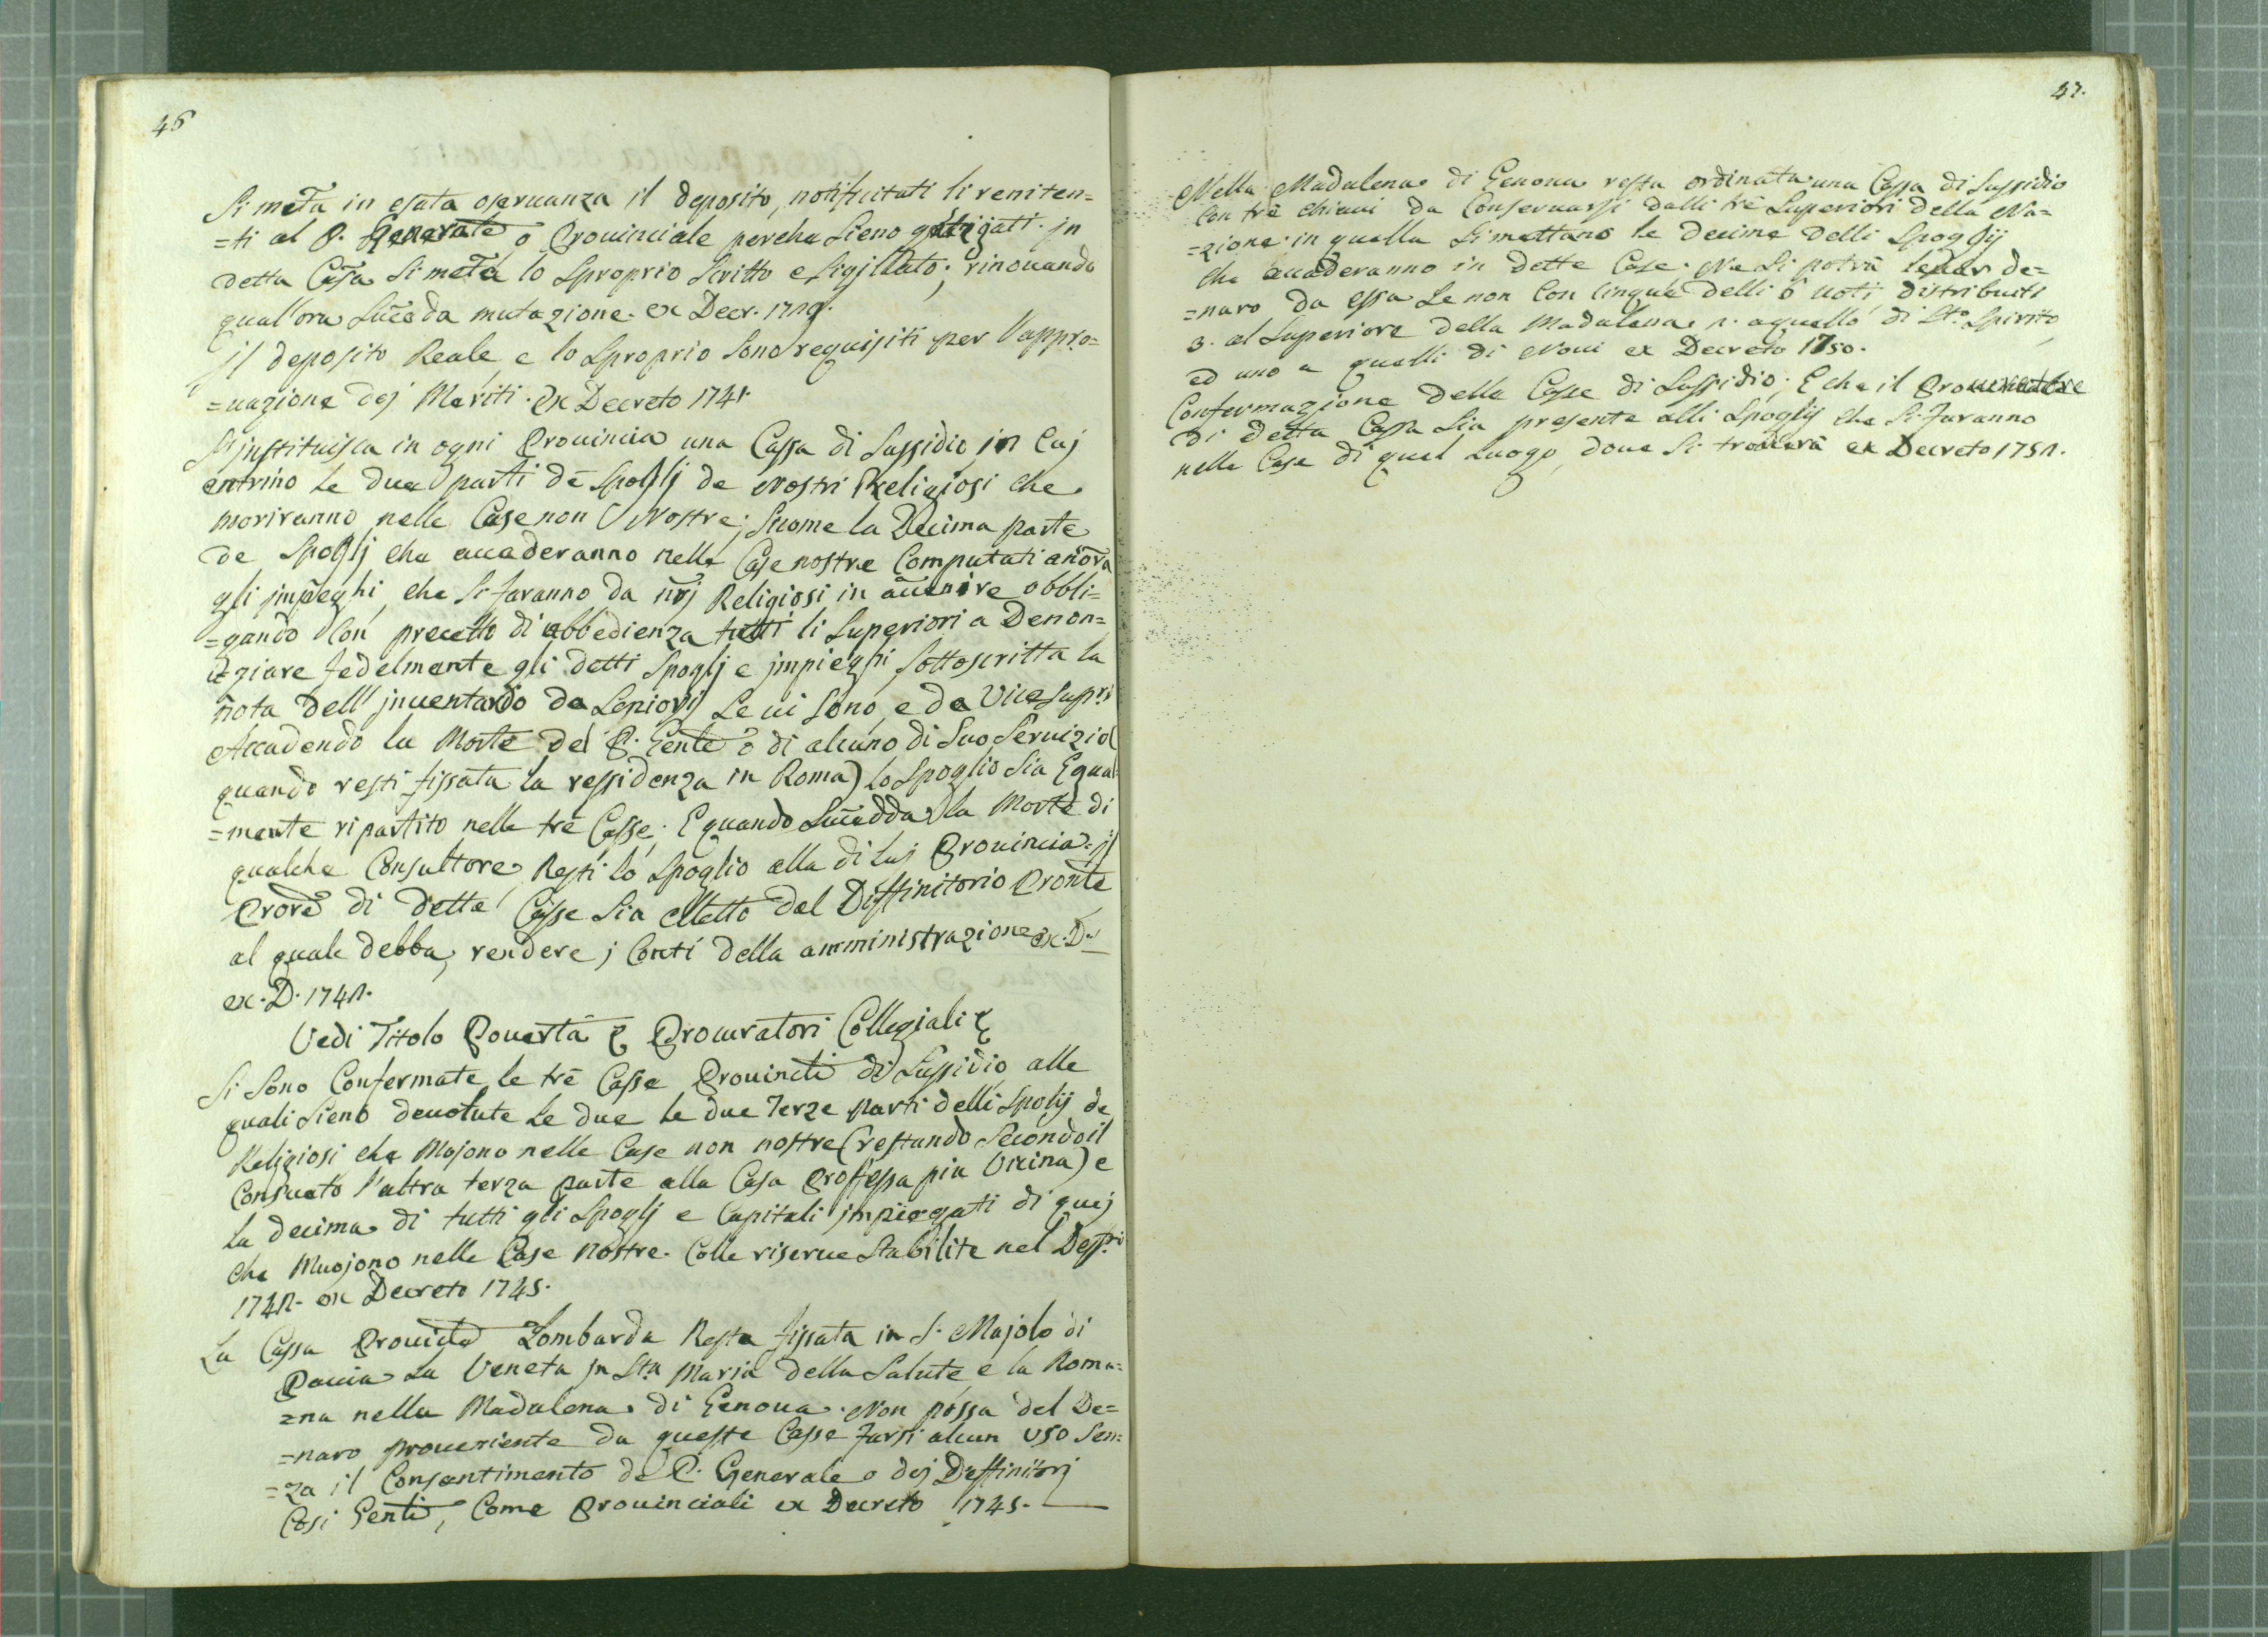 46
Si meta in esata oservanza il deposito, notificati li reniten=
=ti al P. Generale o Provinciale perche sieno gastigati. jn
detta Casa si meta lo sproprio scritto e sigillato; rinovando
qual'ora suceda mutazione. ex Decr. 1729.
jl deposito Reale, e lo sproprio sono requisiti per l'appro=
=uazione dej Meriti. ex Decreto 1741.
Si jnstituisca in ogni Provincia una Cassa di Sussidio, in Cuj
entrino le due parti de Spoglj de Nostri Religiosi che
moriranno nelle Case non Nostre; sicome la Decima parte
de Spoglj che accaderanno nelle Case nostre Computati ancora
gli jmpieghi, che si faranno da nrj Religiosi in auuenire obbli=
=gando Con precetto di obbedienza tutti li Superiori a Denon=
=ziare fedelmente gli detti Spoglj e jmpieghi, sottoscritta la
nota dell'jnuentario da Seniorj se ui sono, e da Vice Supri
Accadendo la Morte del P. Gente ò di alcuno di Suo Seruizio (
quando resti fissata la ressidenza in Roma) lo Spoglio sia Equal
=mente ripartito nelle trè Casse; E quando Succedda la Morte di
qualche Consultore, Resti lo Spoglio alla di luj Prouincia. jl
Prore di dette Casse sia elletto dal Diffinitorio Pronte
al quale debba, rendere j Conti della amministrazione ex. D.
ex. D. 1742.
Vedi Titolo Pouertà e Procuratori Collegiali
Si sono Confermate le trè Casse Prouincli di Sussidio, alle
quali sieno deuolute le due le due Terze parti delli Spolij de
Religiosi che Mojono nelle Case non nostre (restando Secondo il
Consueto l'altra terza parte alla Casa Professa piu Vicina) e
la decima di tutti gli Spoglj e Capitali jmpiegati di quej
che Muojono nelle Case nostre. Colle riserue stabilite nel
1742. ex Decreto 1745.
La Cassa Prouicle Lombarda Resta fissata in S. Majolo di
Pauia la Veneta jn Sta Maria della Salute, e la Roma=
=na nella Madalena di Genoua. Non possa del De=
=naro proueniente da queste Casse farsi alcun uso sen=
=za il Consentimento del P. Generale o dej Diffinitorj
Cosi Genli, Come Prouinciali ex Decreto 1745.
47.
Nella Madalena di Genoua resta ordinata una Cassa di Sussidio
Con trè chiaui da Conseruarsi dalli trè Superiori della Na=
=zione: in quella si mettano le decime delli Spoglij
che accaderanno in dette Case. Ne si potrà leuar de=
=naro da essa se non Con Cinque delli 6 uoti distribuiti
3. al Superiore della Madalena, 2. a quello di Sto. Spirito,
ed uno a quelli di Noui ex Decreto 1750.
Confermazione delle Casse di Sussidio; E che il
di detta Cassa sia presente alli Spoglij che si faranno
nelle Case di quel Luogo, doue si trouerà ex Decreto 1751.